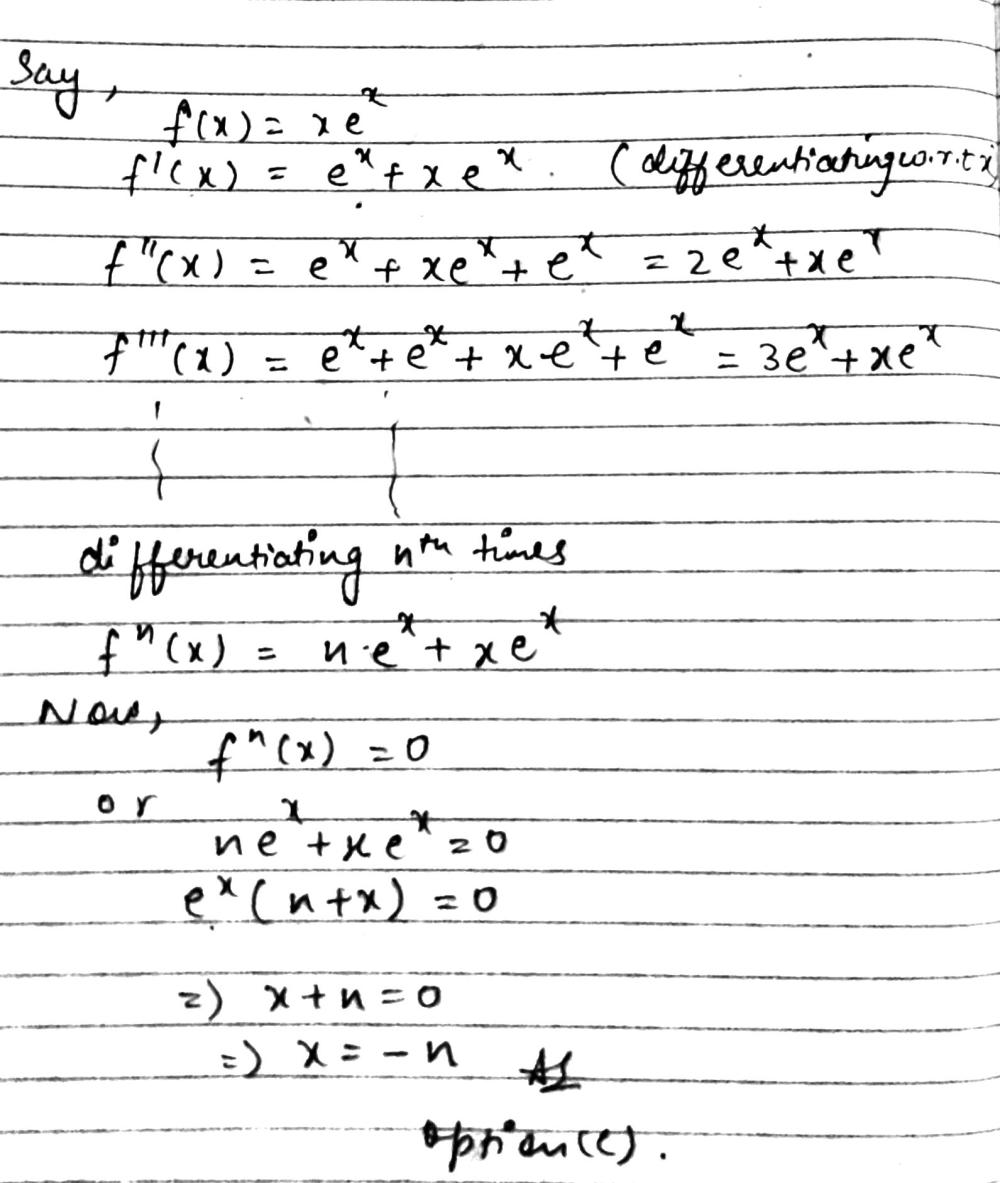 Say,
f(x) = xeˣ
f'(x) = eˣ + xeˣ. (differentiating w.r.t x)
f''(x) = eˣ + xeˣ + eˣ = 2eˣ + xeˣ
f'''(x) = eˣ + eˣ + xeˣ + eˣ = 3eˣ + xeˣ
differentiating nᵗʰ times
fⁿ(x) = n·eˣ + xeˣ
Now,
fⁿ(x) = 0
or
neˣ + xeˣ = 0
eˣ(n+x) = 0
=) x + n = 0
=) x = -n
option(c).